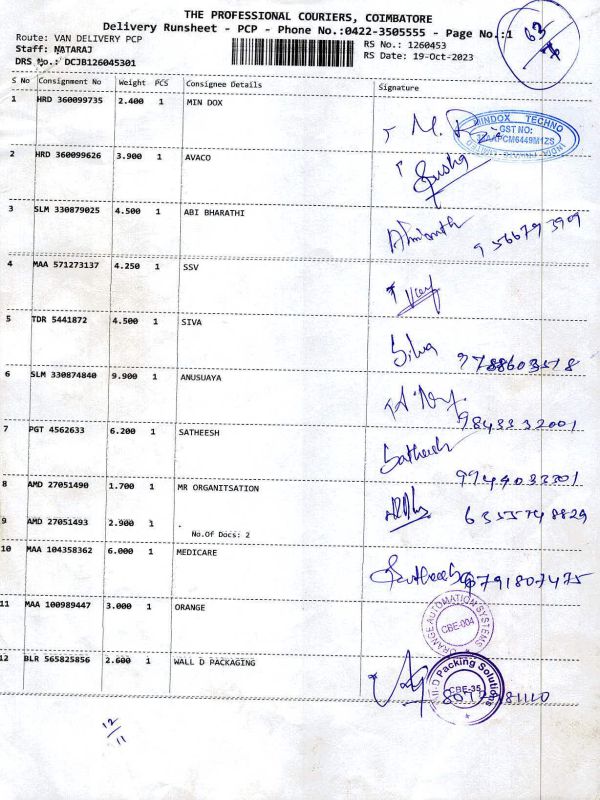 THE PROFESSIONAL COURIERS, COIMBATORE
Delivery Runsheet - PCP - Phone No.:0422-3505555 - Page No.:1
63
Route: VAN DELIVERY PCP
RS No.: 1260453
Staff: NATARAJ
RS Date: 19-Oct-2023
DRS No.: DCJB126045301
S No Consignment No Weight PCS Consignee Details Signature
1 HRD 360099735 2.400 1 MIN DOX
MINDOX TECHNO
GST NO:
2 HRD 360099626 3.900 1 AVACO
3 SLM 330879025 4.500 1 ABI BHARATHI
9566793909
4 MAA 571273137 4.250 1 SSV
5 TDR 5441872 4.500 1 SIVA
Silva 9788603518
6 SLM 330874840 9.900 1 ANUSUAYA
9843332001
7 PGT 4562633 6.200 1 SATHEESH
Satheesh
9944033301
8 AMD 27051490 1.700 1 MR ORGANITSATION
6355748829
9 AMD 27051493 2.900 1 .
No.Of Docs: 2
10 MAA 104358362 6.000 1 MEDICARE
9791807475
11 MAA 100989447 3.000 1 ORANGE
ORANGE AUTOMATION SYSTEMS
CBE-004
12 BLR 565825856 2.600 1 WALL D PACKAGING
Packing Solutions
CBE-35
81110
12
11